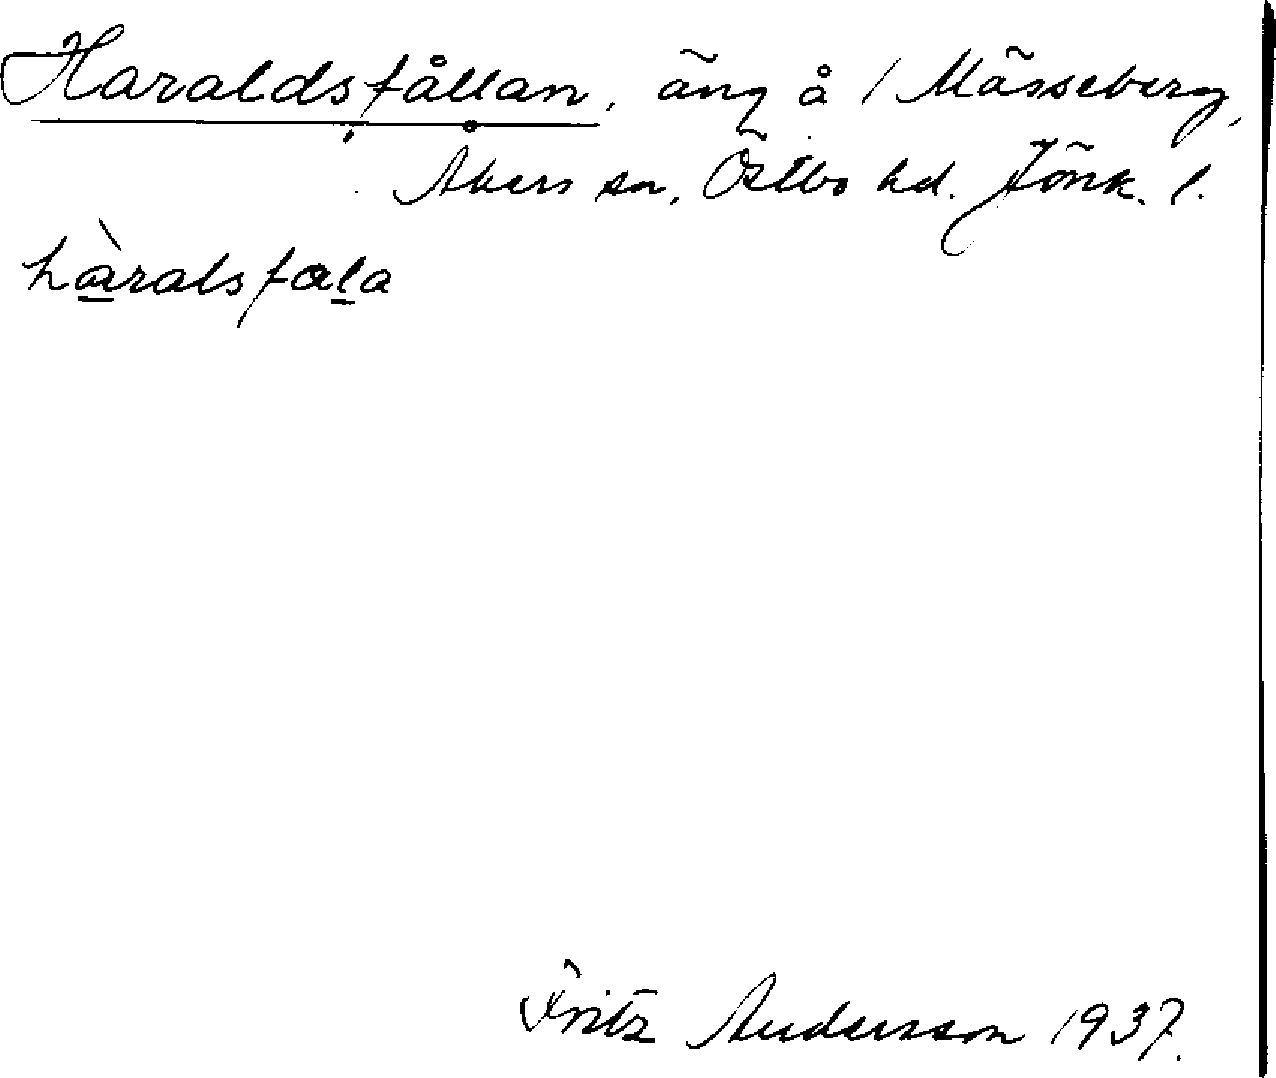 Haraldsfållan, äng å / Mässeberg,
Åkers sn, Östbo hd. Jönk. l.
hàralsfala
Fritz Andersson 1937.